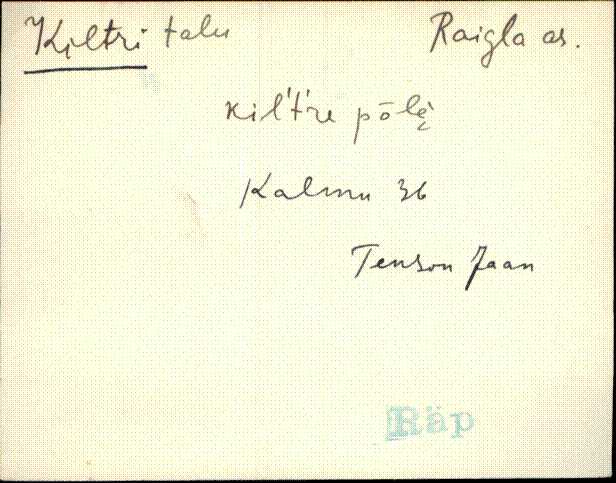 Kiltri talu Raigla as.
kil't're pōlè̬
Kalmu 36
Tenson Jaan
Räp